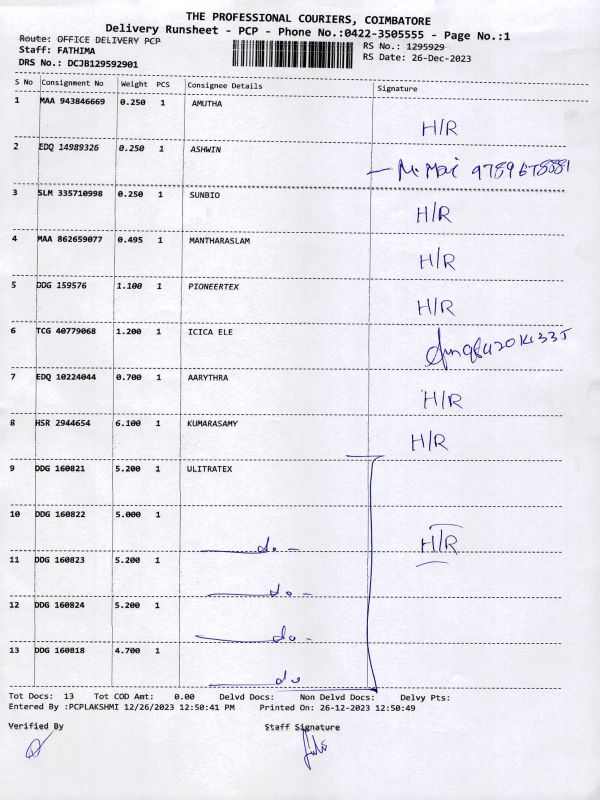 THE PROFESSIONAL COURIERS, COIMBATORE
Delivery Runsheet - PCP - Phone No.:0422-3505555 - Page No.:1
Route: OFFICE DELIVERY PCP RS No.: 1295929
Staff: FATHIMA RS Date: 26-Dec-2023
DRS No.: DCJB129592901
S No Consignment No Weight PCS Consignee Details Signature
1 MAA 943846669 0.250 1 AMUTHA
H/R
2 EDQ 14989326 0.250 1 ASHWIN
3 SLM 335710998 0.250 1 SUNBIO
H/R
4 MAA 862659077 0.495 1 MANTHARASLAM
H/R
5 DDG 159576 1.100 1 PIONEERTEX
H/R
6 TCG 40779068 1.200 1 ICICA ELE
7 EDQ 10224044 0.700 1 AARYTHRA
H/R
8 HSR 2944654 6.100 1 KUMARASAMY
H/R
9 DDG 160821 5.200 1 ULITRATEX
10 DDG 160822 5.000 1
do - H/R
11 DDG 160823 5.200 1
do -
12 DDG 160824 5.200 1
do -
13 DDG 160818 4.700 1
do
Tot Docs: 13 Tot COD Amt: 0.00 Delvd Docs: Non Delvd Docs: Delvy Pts:
Entered By :PCPLAKSHMI 12/26/2023 12:50:41 PM Printed On: 26-12-2023 12:50:49
Verified By Staff Signature